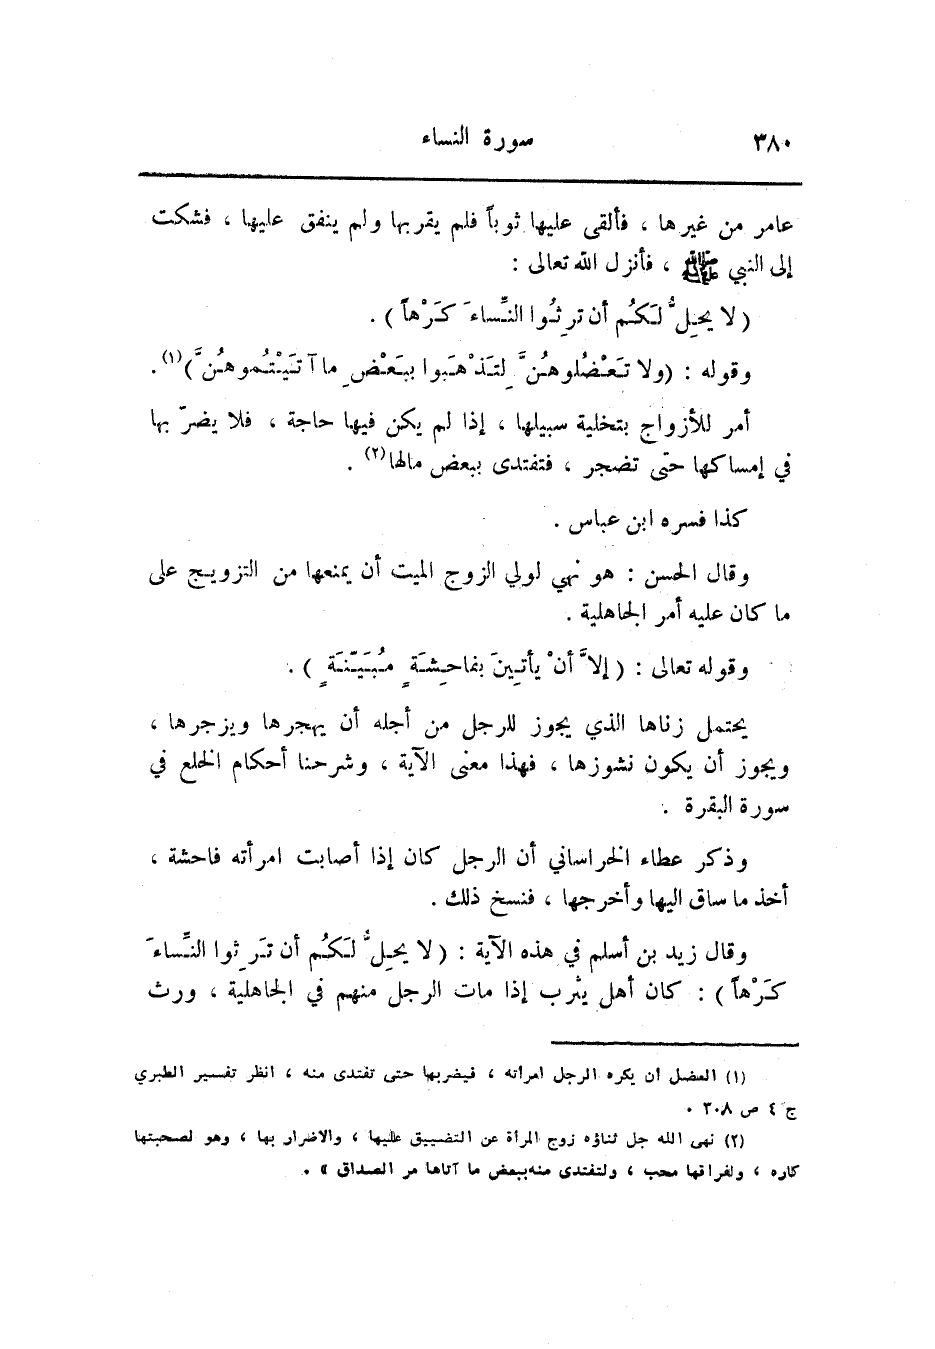 ٣٨٠ سورة النساء
عامر من غيرها ، فألقى عليها ثوباً فلم يقربها ولم ينفق عليها ، فشكت
إلى النبي ﷺ ، فأنزل الله تعالى :
( لا يحِلُّ لَكُم أن ترِثُوا النِّساءَ كَرْهاً ) .
وقوله : (ولا تَعْضُلوهُنَّ لِتَذْهَبوا ببَعْضِ ما آتَيْتُموهُنَّ)(١) .
أمر للأزواج بتخلية سبيلها ، إذا لم يكن فيها حاجة ، فلا يضرّ بها
في إمساكها حتى تضجر ، فتفتدى ببعض مالها(٢) .
كذا فسره ابن عباس .
وقال الحسن : هو نهي لولي الزوج الميت أن يمنعها من التزويج على
ما كان عليه أمر الجاهلية .
وقوله تعالى : ( إلاَّ أنْ يأتِينَ بفاحِشَةٍ مُبَيّنَةٍ ) .
يحتمل زناها الذي يجوز للرجل من أجله أن يهجرها ويزجرها ،
ويجوز أن يكون نشوزها ، فهذا معنى الآية ، وشرحنا أحكام الخلع في
سورة البقرة .
وذكر عطاء الخراساني أن الرجل كان إذا أصابت امرأته فاحشة ،
أخذ ما ساق اليها وأخرجها ، فنسخ ذلك .
وقال زيد بن أسلم في هذه الآية : ( لا يحِلُّ لَكُم أن تَرِثوا النِّساءَ
كَرْهاً ) : كان أهل يثرب إذا مات الرجل منهم في الجاهلية ، ورث
(١) العضل أن يكره الرجل امرأته ، فيضربها حتى تفتدى منه ، انظر تفسير الطبري
ج ٤ ص ٣٠٨ .
(٢) نهى الله جل ثناؤه زوج المرأة عن التضييق عليها ، والاضرار بها ، وهو لصحبتها
كاره ، ولفراقها محب ، ولتفتدى منه ببعض ما آتاها مر الصداق » .